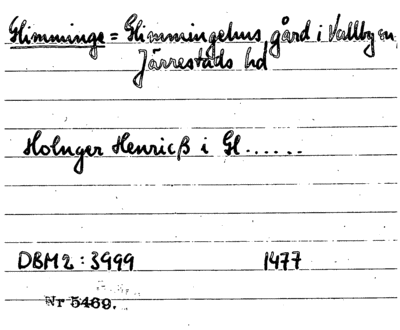 Glimminge = Glimmingehus, gård i Vallby sn,
Järrestads hd
Holnger Henricß i Gl......
DBM2: 3999 1477
Nr 5469.